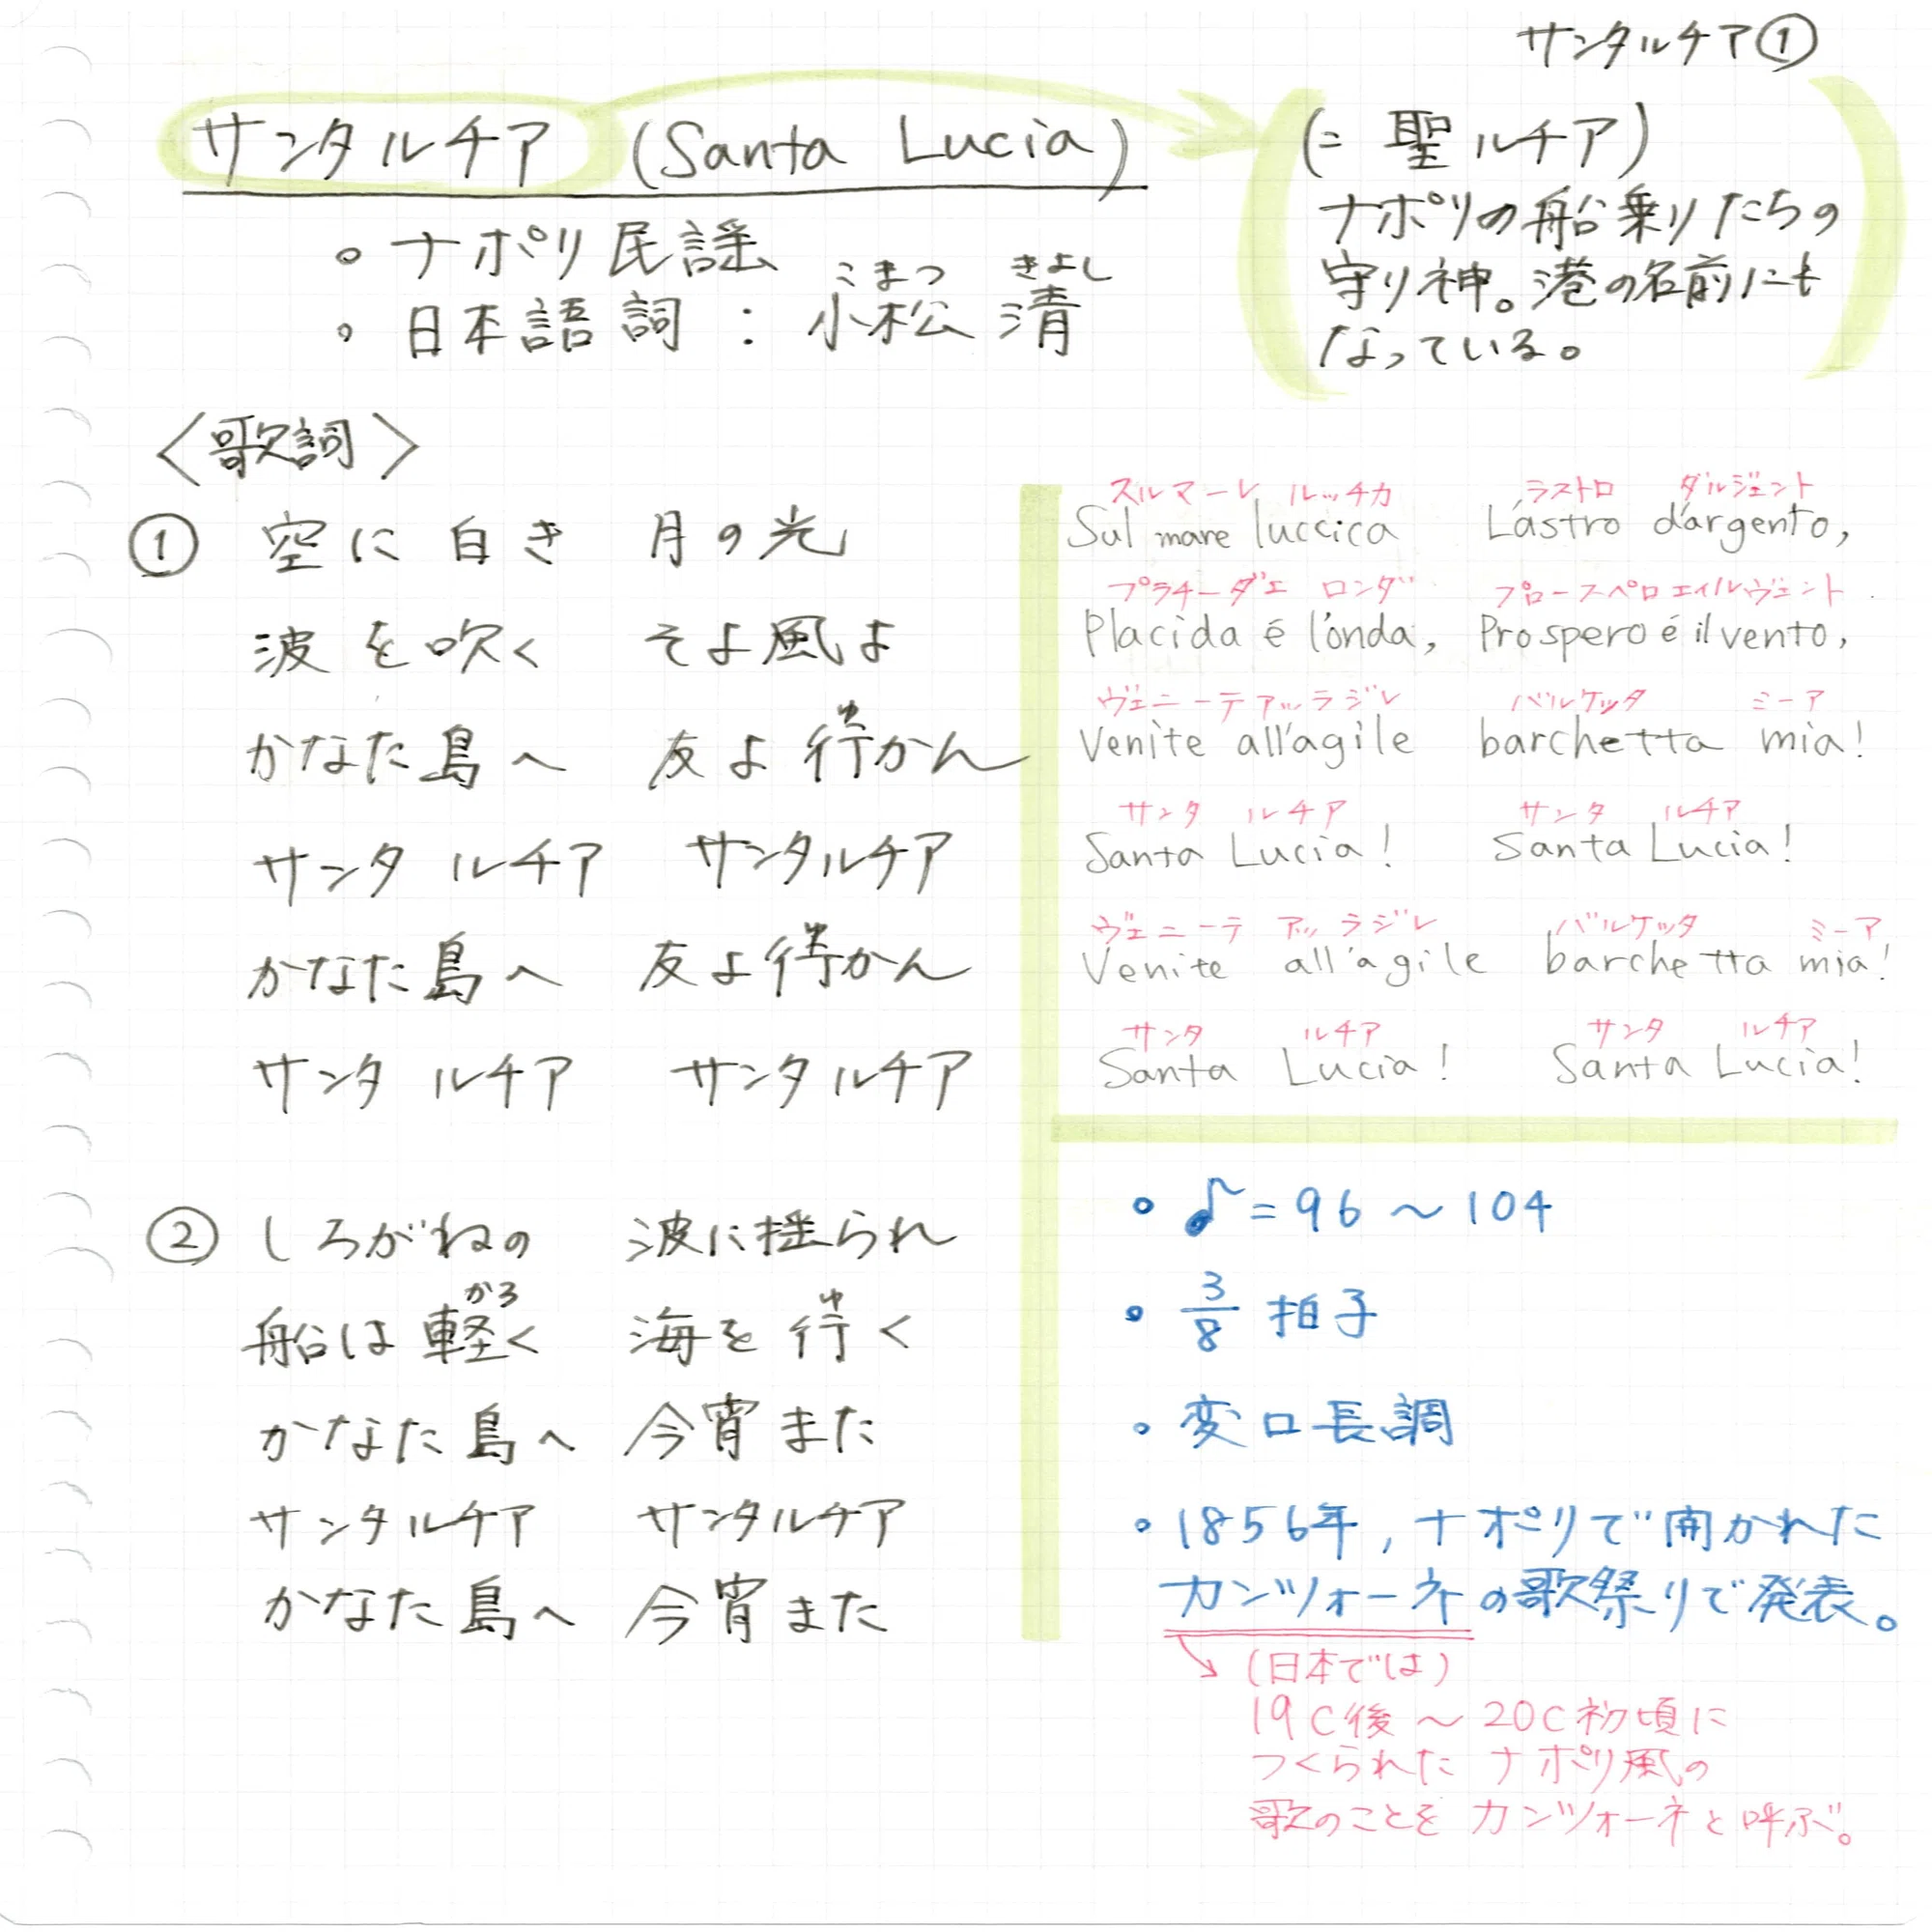 サンタルチア①
サンタルチア (Santa Lucia)
(= 聖ルチア)
ナポリの船乗りたちの
守り神。港の名前にも
なっている。
。ナポリ民謡
こまつ きよし
。日本語詞 : 小松 清
〈歌詞〉
① 空に白き 月の光
波を吹く そよ風よ
ゆ
かなた島へ 友よ行かん
サンタ ルチア サンタルチア
ゆ
かなた島へ 友よ行かん
サンタ ルチア サンタ ルチア
スルマーレ ルッチカ ラストロ ダルジェント
Sul mare luccica L'astro d'argento,
プラチーダエ ロンダ プロースペロエイルヴェント
Placida é l'onda, Prospero é il vento,
ヴェニーテアッラジレ バルケッタ ミーア
Venite all'agile barchetta mia!
サンタ ルチア サンタ ルチア
Santa Lucia! Santa Lucia!
ヴェニーテ アッラジレ バルケッタ ミーア
Venite all'agile barchetta mia!
サンタ ルチア サンタ ルチア
Santa Lucia! Santa Lucia!
② しろがねの 波に揺られ
かろ ゆ
船は軽く 海を行く
かなた島へ 今宵また
サンタルチア サンタルチア
かなた島へ 今宵また
。♪=96～104
。3/8 拍子
。変ロ長調
。1856年, ナポリで開かれた
カンツォーネの歌祭りで発表。
(日本では)
19C後～20C初頃に
つくられた ナポリ風の
歌のことを カンツォーネと呼ぶ。